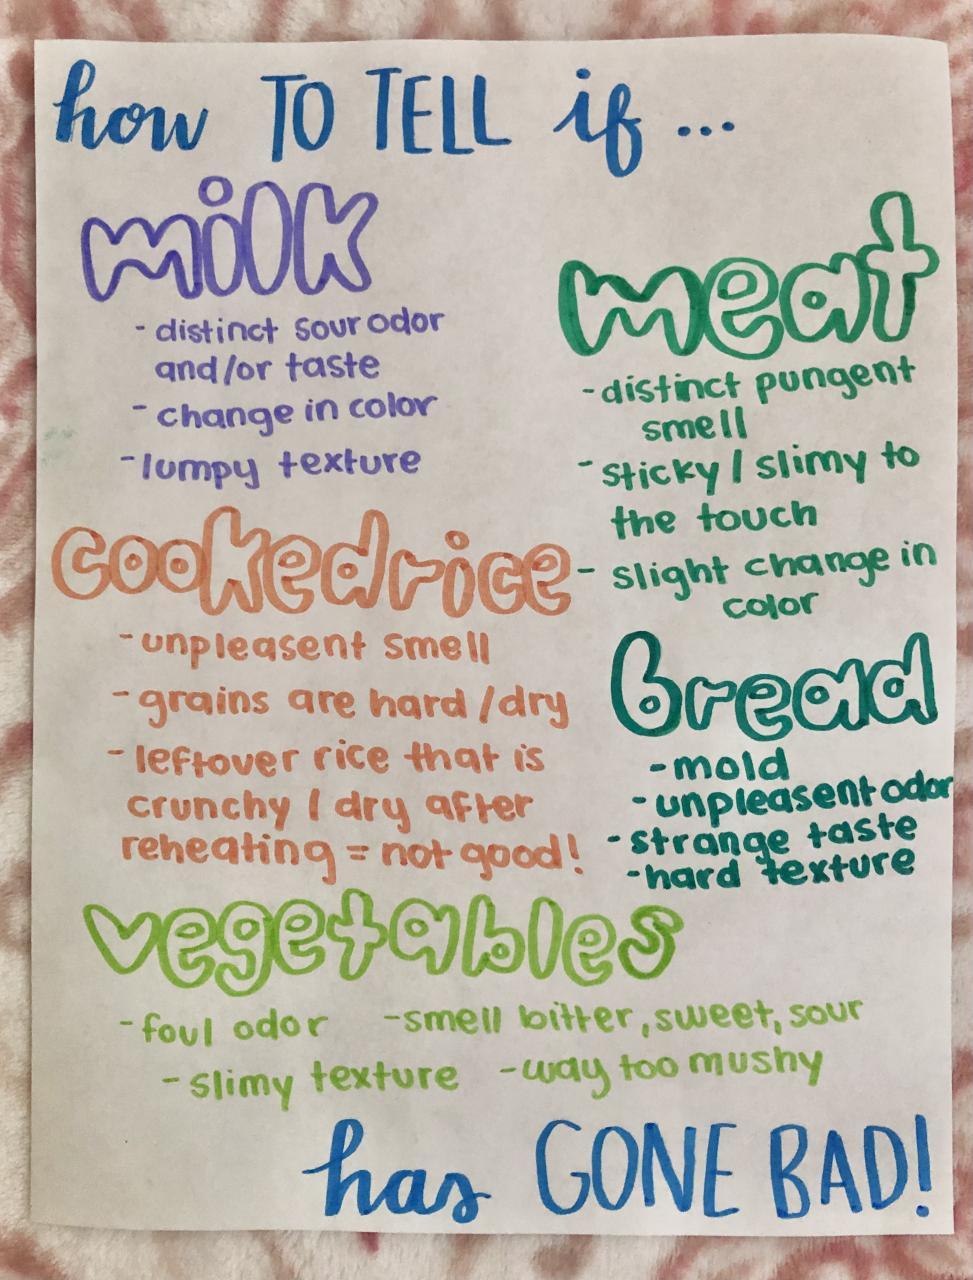 how TO TELL if ...
milk
- distinct sour odor
and/or taste
- change in color
- lumpy texture
meat
- distinct pungent
smell
- sticky / slimy to
the touch
- slight change in
color
cooked rice
- unpleasent smell
- grains are hard / dry
- leftover rice that is
crunchy / dry after
reheating = not good!
bread
- mold
- unpleasent odor
- strange taste
- hard texture
vegetables
- foul odor - smell bitter, sweet, sour
- slimy texture - way too mushy
has GONE BAD!